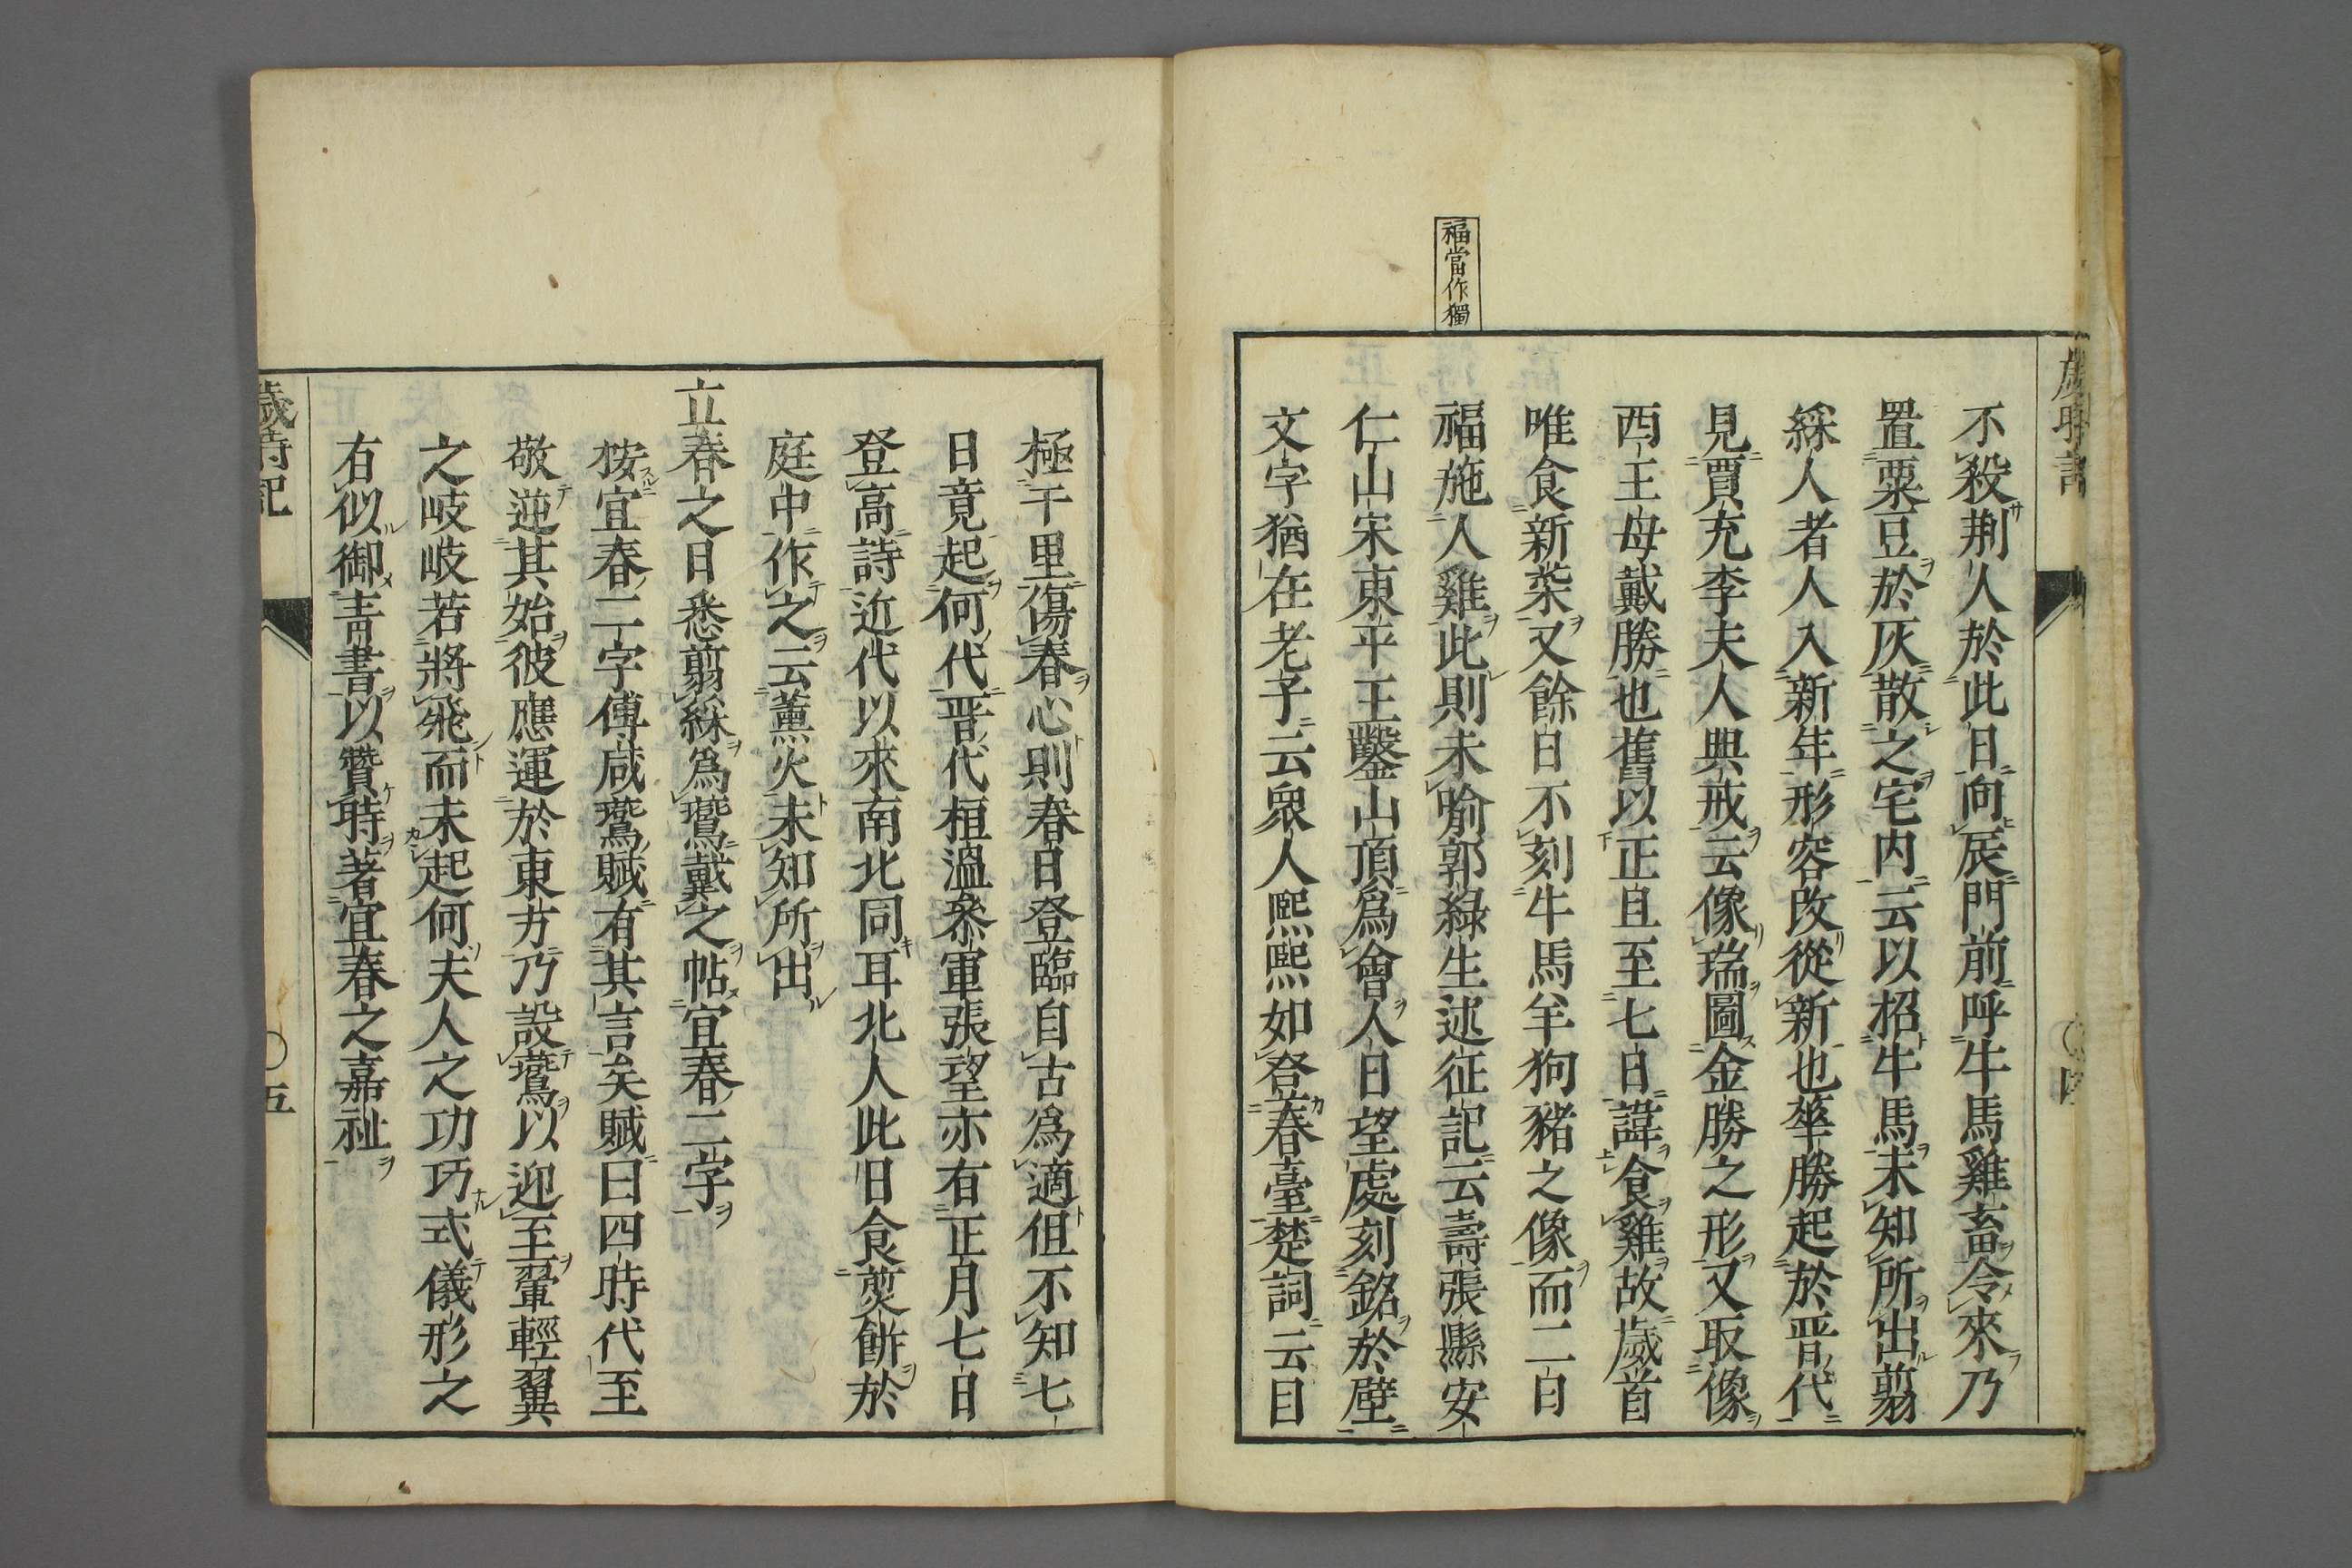 歲時記
不殺荆人於此日向辰門前呼牛馬雞畜令來乃
置粟豆於灰散之宅内云以招牛馬未知所出翦
綵人者人入新年形容改從新也華勝起於晋代
見賈充李夫人典戒云像瑞圖金勝之形又取像
西王母戴勝也舊以正旦至七日諱食雞故歲首
唯食新菜又餘日不刻牛馬羊狗豬之像而二日
福當作獨
福施人雞此則未喻郭緑生述征記云壽張縣安
仁山宋東平王鑿山頂爲會人日望處刻銘於壁
文字猶在老子云衆人熈熈如登春臺楚詞云目
極千里傷春心則春日登臨自古爲適但不知七
日竟起何代晋代桓溫叅軍張望亦有正月七日
登高詩近代以來南北同耳北人此日食煎餅於
庭中作之云薫火未知所出
立春之日悉翦綵爲鷰戴之帖宜春二字
按宜春二字傅咸鷰賦有其言矣賦曰四時代至
敬逆其始彼應運於東方乃設鷰以迎至翬輕翼
之岐岐若將飛而未起何夫人之功巧式儀形之
右似御靑書以贊時著宜春之嘉祉
歲時記 五